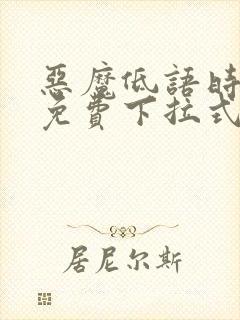 惡魔低語時
免費下拉式
居尼尔斯